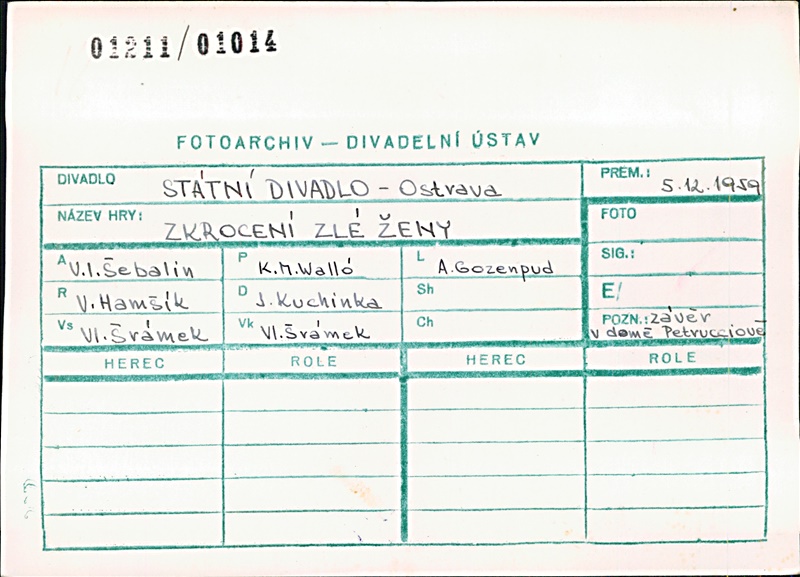 01211/01014
FOTOARCHIV — DIVADELNÍ ÚSTAV
DIVADLO STÁTNÍ DIVADLO - Ostrava
PREM.: 5.12.1959
NÁZEV HRY: ZKROCENÍ ZLÉ ŽENY
FOTO
A V.I.Šebalin P K.M.Walló L A.Gozenpud
SIG.:
R V.Hamšík D J.Kuchinka Sh
E/
Vs Vl.Šrámek Vk Vl.Šrámek Ch
POZN.: závěr
v domě Petrucciově
HEREC ROLE HEREC ROLE